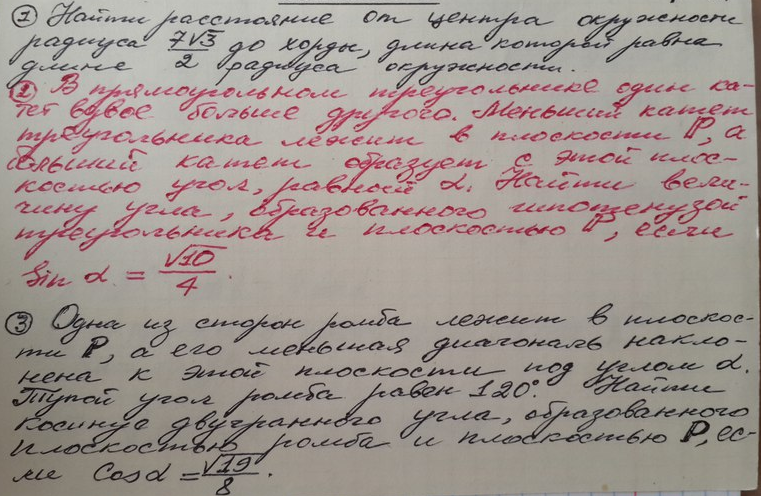 ① Найти расстояние от центра окружности
радиуса 7√3/2 до хорды, длина которой равна
длине радиуса окружности.
② В прямоугольном треугольнике один ка-
тет вдвое больше другого. Меньший катет
треугольника лежит в плоскости P, а
больший катет образует с этой плос-
костью угол, равный α. Найти вели-
чину угла, образованного гипотенузой
треугольника и плоскостью P, если
Sin α = √10/4.
③ Одна из сторон ромба лежит в плоскос-
ти P, а его меньшая диагональ накло-
нена к этой плоскости под углом α.
Тупой угол ромба равен 120°. Найти
косинус двугранного угла, образованного
плоскостью ромба и плоскостью P, ес-
ли Cos α = √19/8.